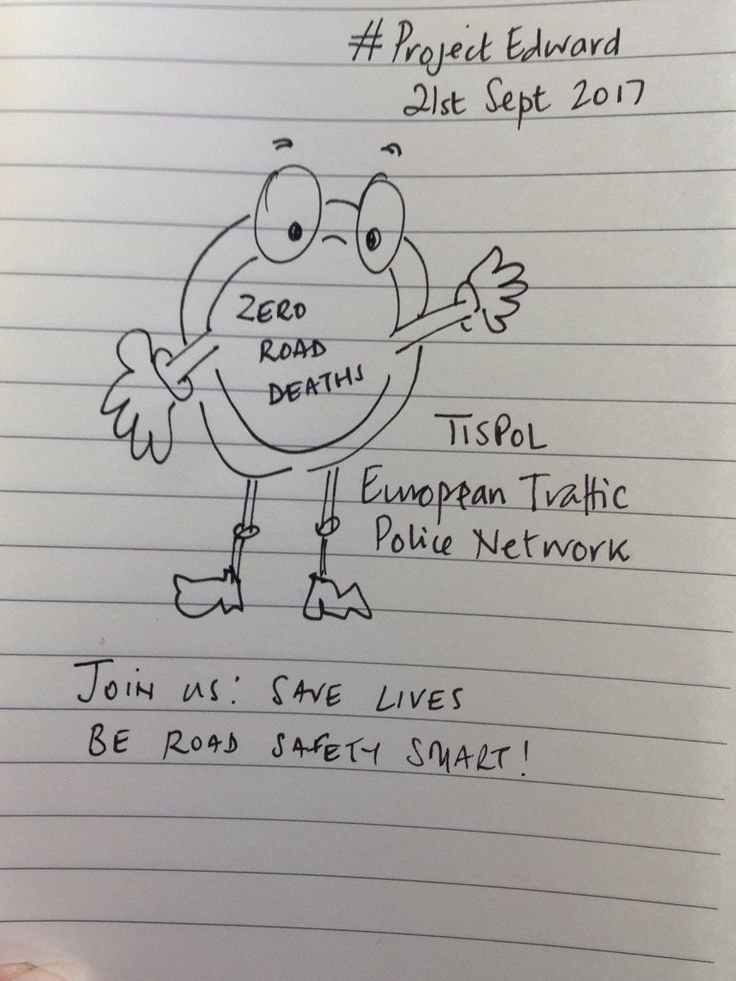 #Project Edward
21st Sept 2017
ZERO
ROAD
DEATHS
TISPOL
European Traffic
Police Network
JOIN US: SAVE LIVES
BE ROAD SAFETY SMART!